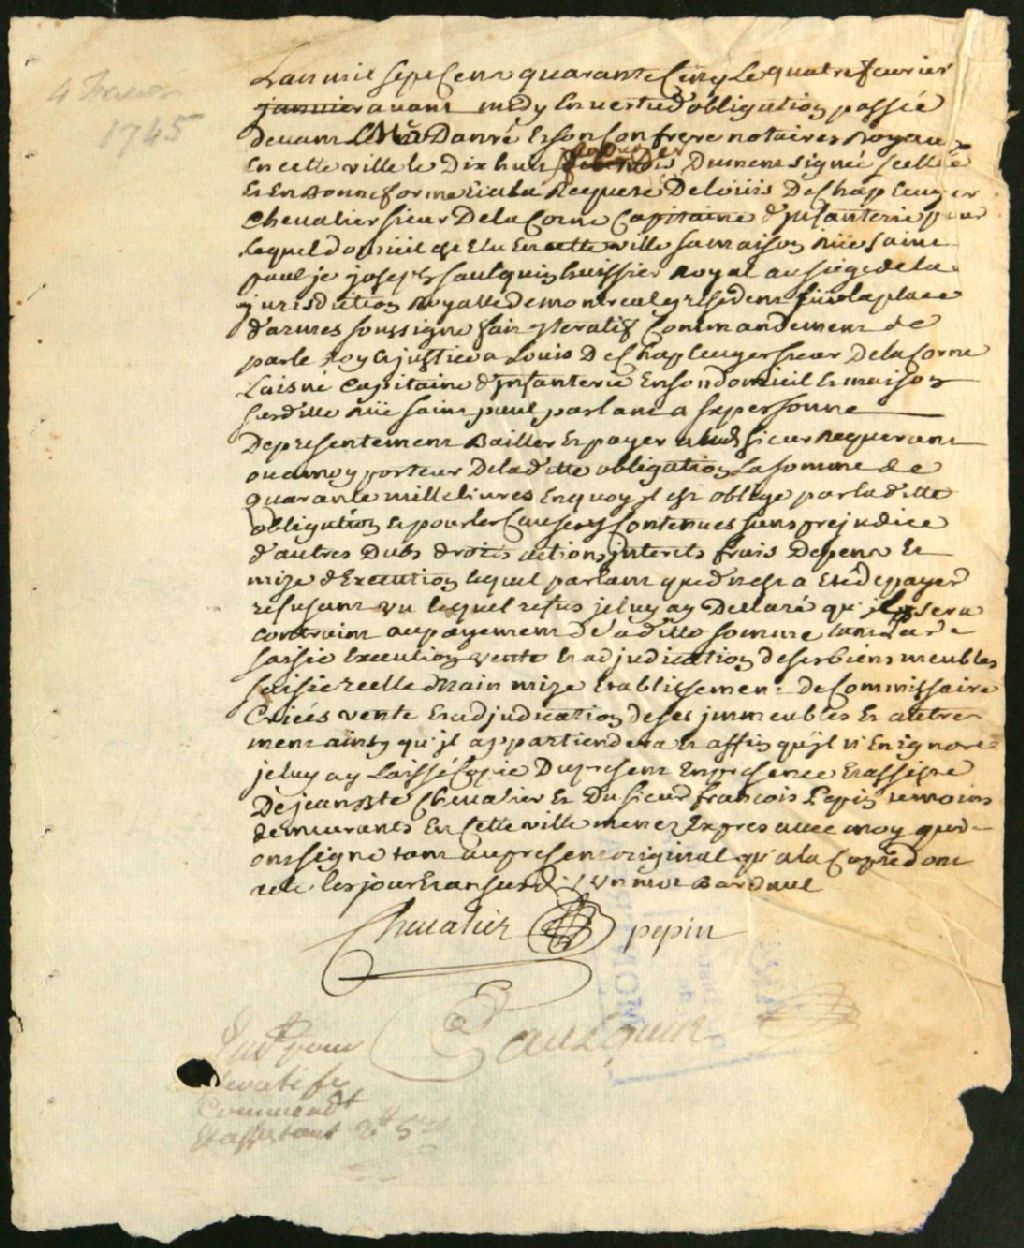 4 Fevrier
1745
Lan mil sept Cent quarante Cinq Le quatre feuvrier
Janvier avant midy En vertu d'obligation passée
devant Le Me Danré Et son Confrere notaires Royaux
En cette ville le Dix huit Dument signé scellé
Et En Bonne forme Et a la Requete De Louis De Chap Lenger
Chevalier sieur De la Corne Capitaine d'Infanterie pour
lequel domicil est Elu En cette ville sa maison Rüe saint
paul je joseph saulquin huissier Royal au siege de la
jurisdiction Royalle de montreal y resident sur la place
d'armes soussigné fait Iteratif Commandement de
par le Roy & justice a Louis De Chap Lenger sieur De la Corne
Laisné Capitaine d'Infanterie En son domicil Et maison
susditte Rüe saint paul parlant a sa personne
De presentement Bailler Et payer audt sieur Requerant
ou a moy porteur De la ditte obligation La somme de
quarante mille livres En quoy il est obligé par la ditte
obligation Et pour les Causes y Contenues sans prejudice
d'autres Dubs droits actions interets frais Depens Et
mize d'Execution lequel parlant que dit est a Eté de payer
refusant vu lequel refus je luy ay Declaré qu'il y sera
contraint au payement de la ditte somme tant par
saisie Execution vente Et adjudication de ses biens meubles
saisie reelle Main mize Etablissement De Commissaire
Criées vente Et adjudication de ses immeubles Et autre
ment ainsy qu'il appartiendera Et affin qu'il n'En ignore
je luy ay Laissé Copie Du present En presence Et assisté
De jean Bte Chevalier Et Du sieur francois Pepin temoins
demeurants En Cette ville menez Expres avec moy qui
ont signé tant au present original qu'a la Copie dont
acte les jour Et an susd. Un mot Barré nul
Chevalier pepin
Saulquin
pour
Iteratif
Commandt
Et assistant 2# 5s